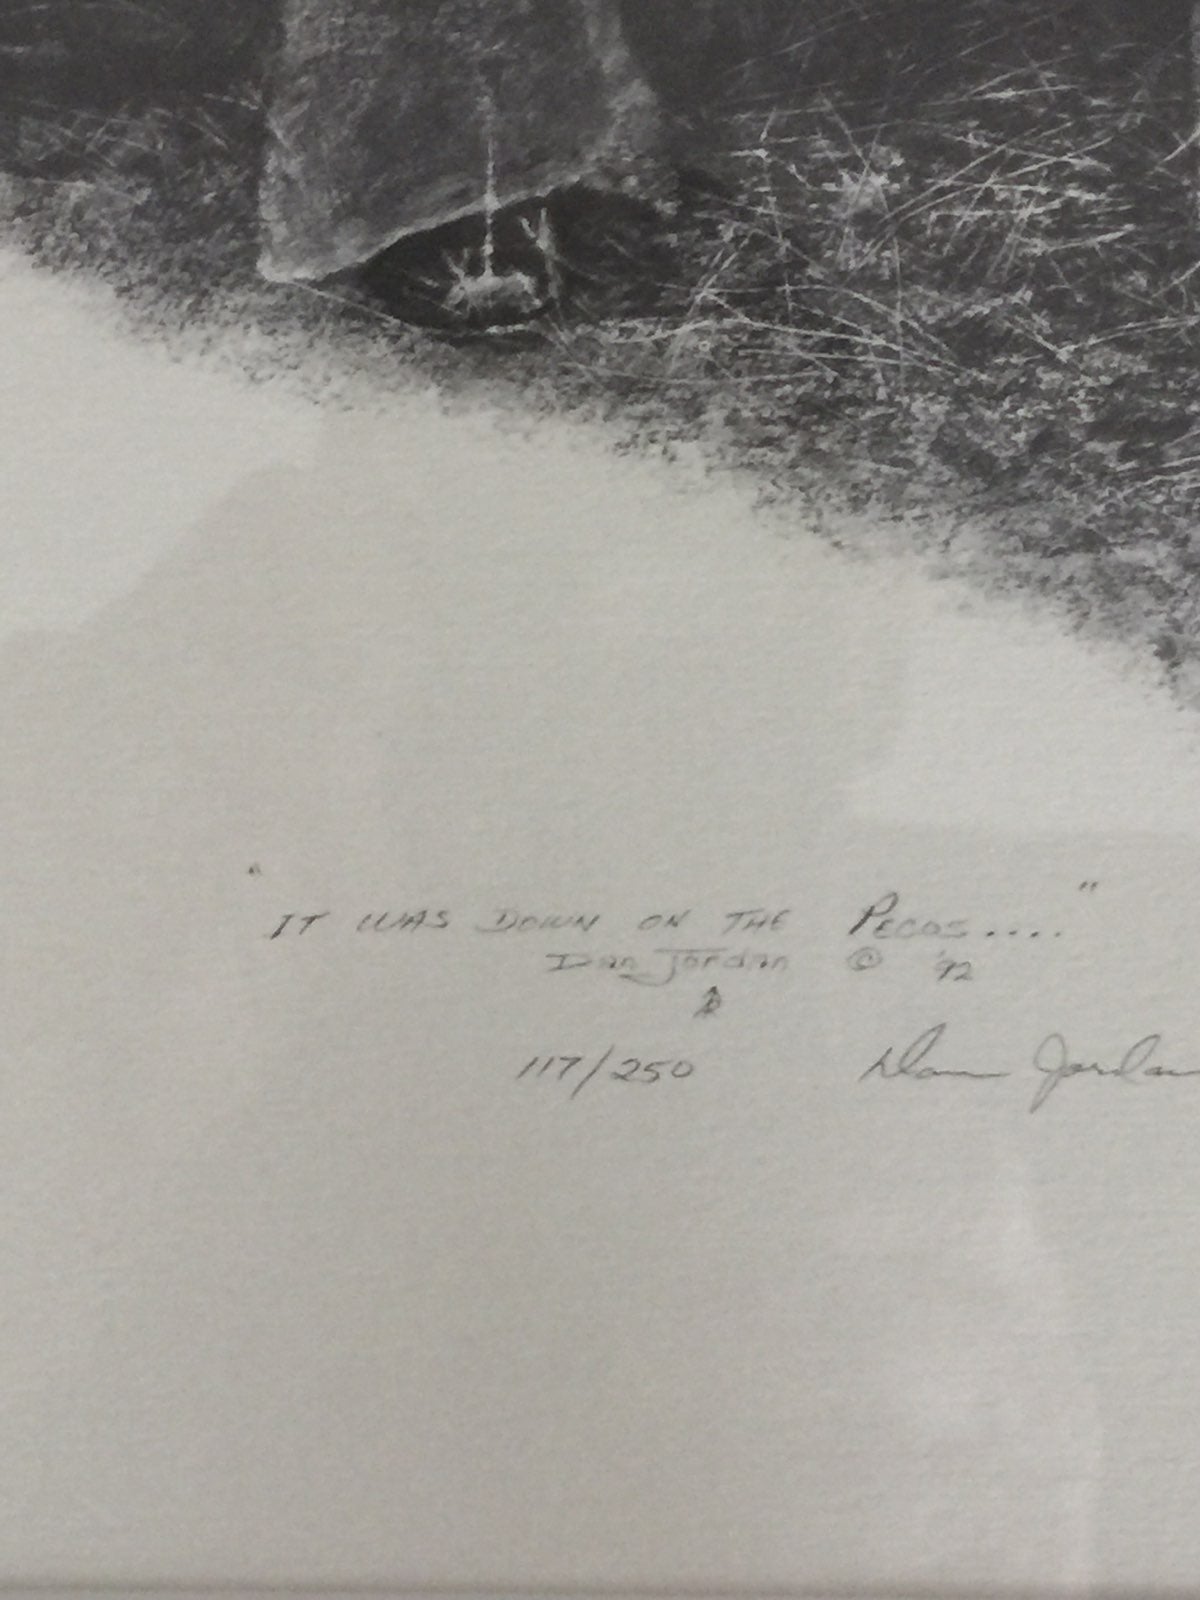 "IT WAS DOWN ON THE PECOS...."
Dan Jordan © '92
117/250 Dan Jordan